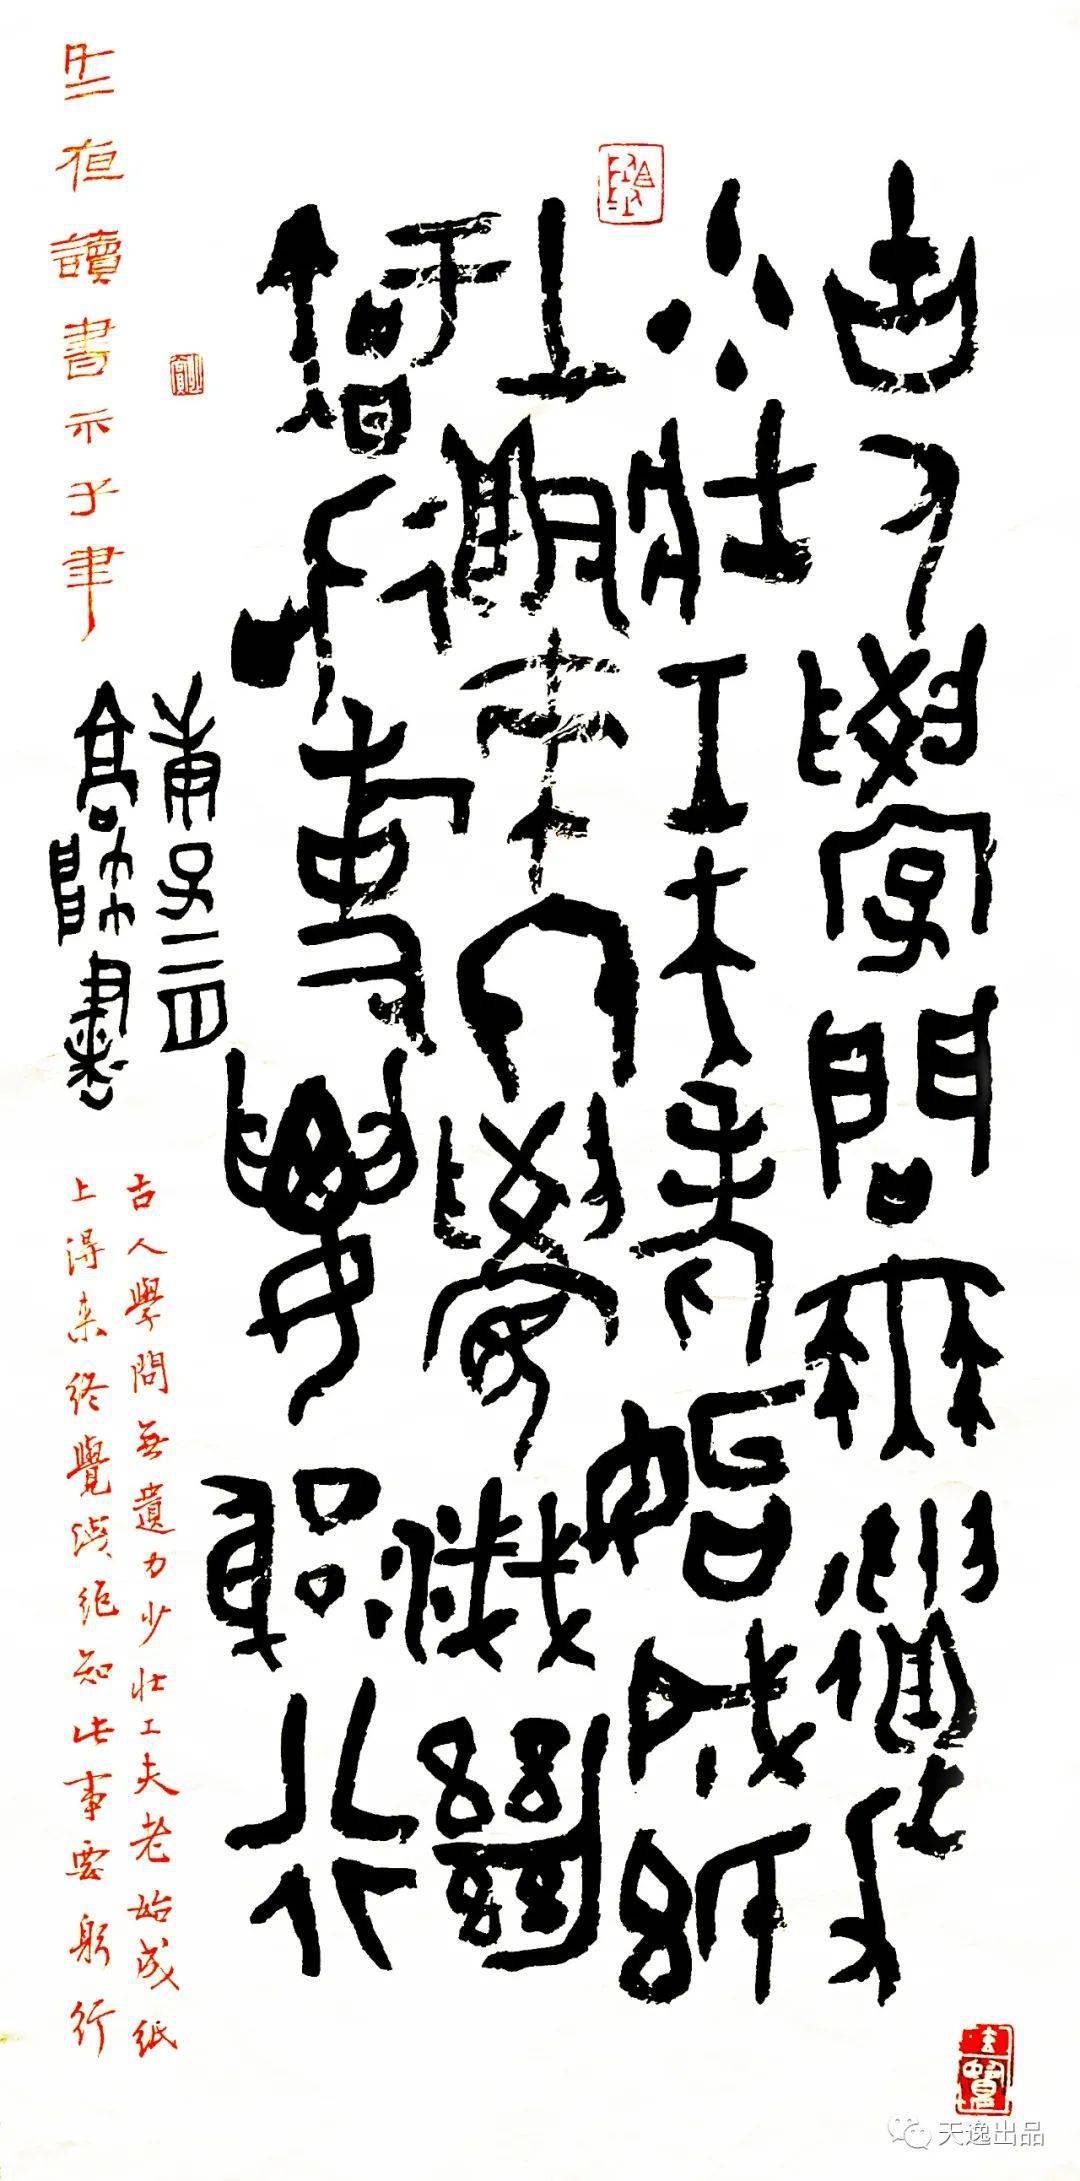 古人學問無遺力
少壯工夫老始成紙
上得來終覺淺絕
知此事要躬行
冬夜讀書示子聿
庚子二四
書
古人學問無遺力少壯工夫老始成紙
上得来终覺淺絕知此事要躬行
天逸出品